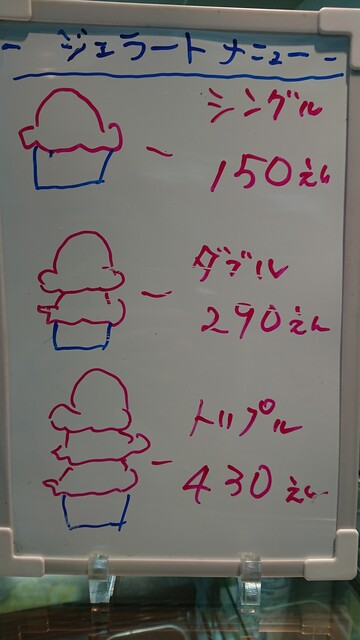 - ジェラートメニュー -
シングル
- 150えん
ダブル
- 290えん
トリプル
- 430えん